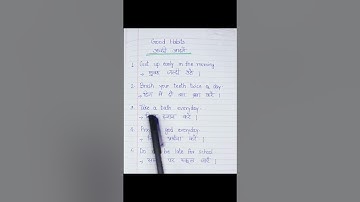 Good Habits
अच्छी आदतें
1. Get up early in the morning
→ सुबह जल्दी उठें ।
2. Brush your teeth twice a day
→ दिन में दो बार ब्रश करें ।
3. Take a bath everyday.
स्नान करें ।
god everyday.
प्रार्थना करें ।
5. Do be late for school
पर स्कूल जाएँ ।